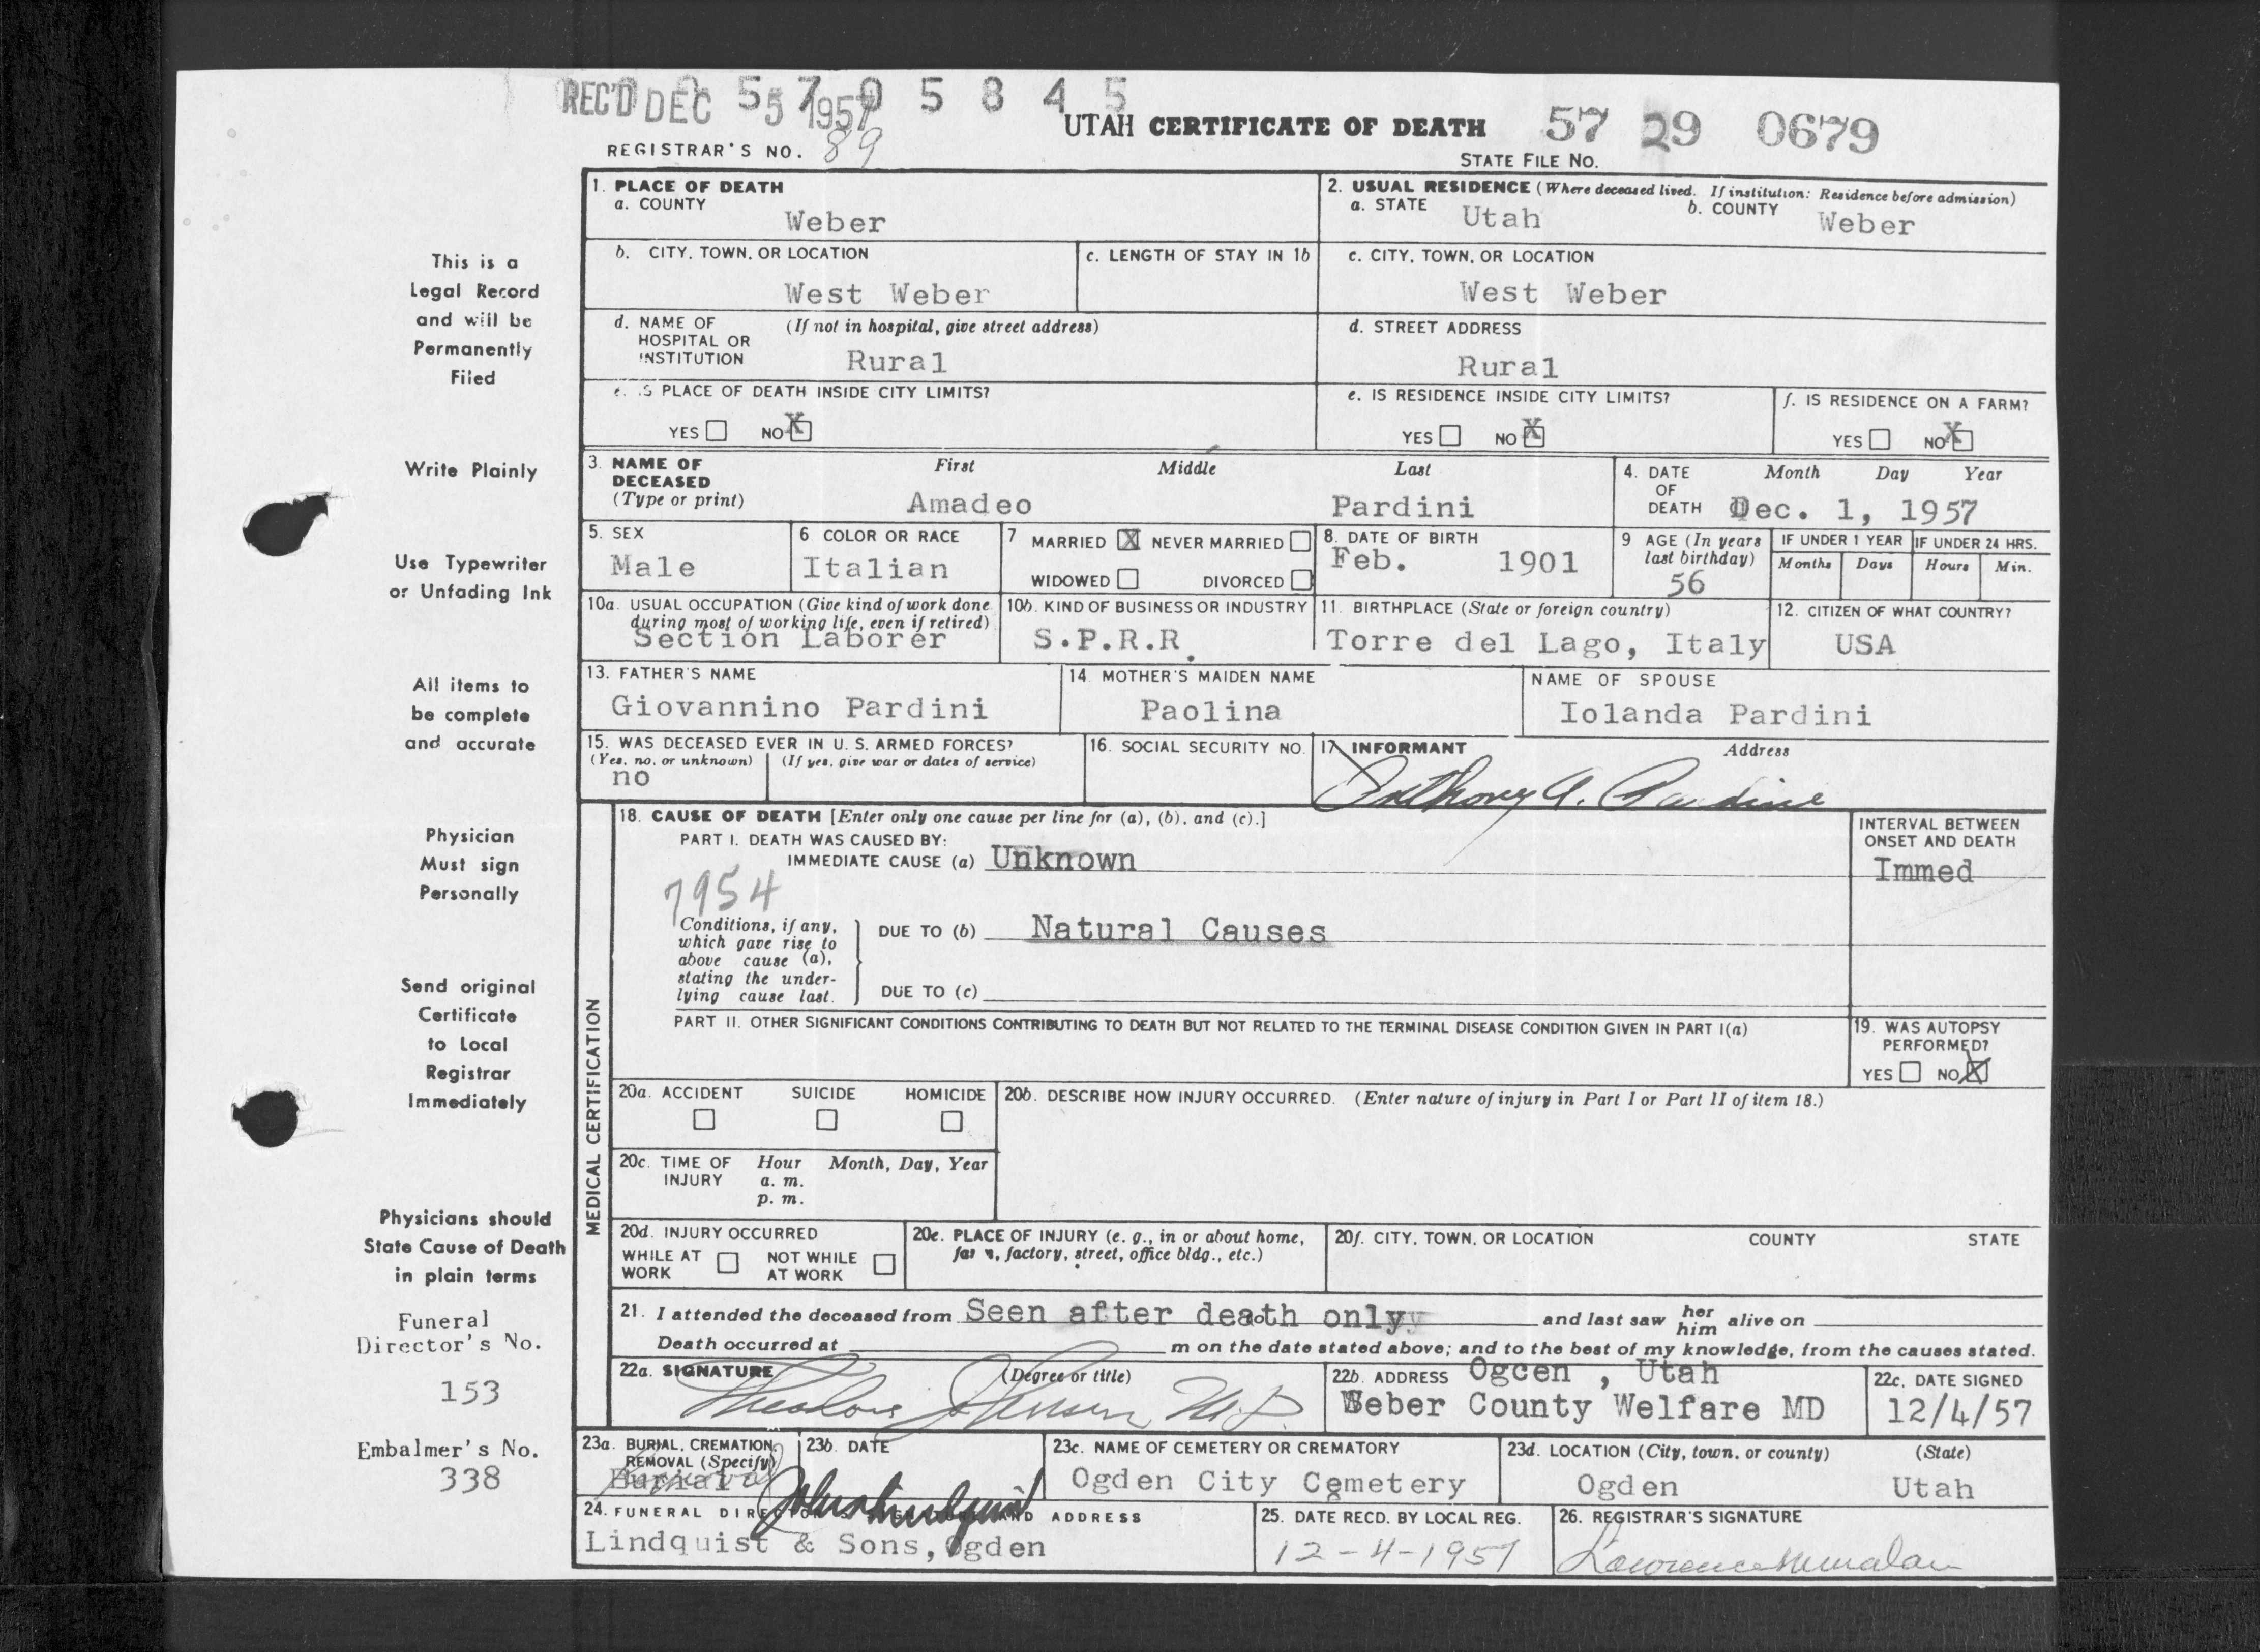 REC'D DEC 5 1957
57 0 5 8 4 5
UTAH CERTIFICATE OF DEATH
57 29 0679
REGISTRAR'S NO. 89
STATE FILE NO.
1. PLACE OF DEATH
a. COUNTY
Weber
2. USUAL RESIDENCE (Where deceased lived. If institution: Residence before admission)
a. STATE Utah b. COUNTY Weber
b. CITY, TOWN, OR LOCATION
West Weber
c. LENGTH OF STAY IN 1b
c. CITY, TOWN, OR LOCATION
West Weber
d. NAME OF HOSPITAL OR INSTITUTION (If not in hospital, give street address)
Rural
d. STREET ADDRESS
Rural
e. IS PLACE OF DEATH INSIDE CITY LIMITS?
YES NO X
e. IS RESIDENCE INSIDE CITY LIMITS?
YES NO X
f. IS RESIDENCE ON A FARM?
YES NO X
3. NAME OF DECEASED (Type or print)
First Middle Last
Amadeo Pardini
4. DATE OF DEATH Month Day Year
Dec. 1, 1957
5. SEX
Male
6 COLOR OR RACE
Italian
7 MARRIED X NEVER MARRIED
WIDOWED DIVORCED
8. DATE OF BIRTH
Feb. 1901
9 AGE (In years last birthday)
56
IF UNDER 1 YEAR IF UNDER 24 HRS.
Months Days Hours Min.
10a. USUAL OCCUPATION (Give kind of work done during most of working life, even if retired)
Section Laborer
10b. KIND OF BUSINESS OR INDUSTRY
S.P.R.R.
11. BIRTHPLACE (State or foreign country)
Torre del Lago, Italy
12. CITIZEN OF WHAT COUNTRY?
USA
13. FATHER'S NAME
Giovannino Pardini
14. MOTHER'S MAIDEN NAME
Paolina
NAME OF SPOUSE
Iolanda Pardini
15. WAS DECEASED EVER IN U. S. ARMED FORCES?
(Yes, no, or unknown) (If yes, give war or dates of service)
no
16. SOCIAL SECURITY NO.
17. INFORMANT Address
Anthony A. Pardini
18. CAUSE OF DEATH [Enter only one cause per line for (a), (b), and (c).]
PART I. DEATH WAS CAUSED BY:
IMMEDIATE CAUSE (a) Unknown
7954
Conditions, if any, which gave rise to above cause (a), stating the underlying cause last.
DUE TO (b) Natural Causes
DUE TO (c)
INTERVAL BETWEEN ONSET AND DEATH
Immed
PART II. OTHER SIGNIFICANT CONDITIONS CONTRIBUTING TO DEATH BUT NOT RELATED TO THE TERMINAL DISEASE CONDITION GIVEN IN PART I(a)
19. WAS AUTOPSY PERFORMED?
YES NO X
MEDICAL CERTIFICATION
20a. ACCIDENT SUICIDE HOMICIDE
20b. DESCRIBE HOW INJURY OCCURRED. (Enter nature of injury in Part I or Part II of item 18.)
20c. TIME OF INJURY Hour Month, Day, Year
a. m.
p. m.
20d. INJURY OCCURRED
WHILE AT WORK NOT WHILE AT WORK
20e. PLACE OF INJURY (e. g., in or about home, farm, factory, street, office bldg., etc.)
20f. CITY, TOWN, OR LOCATION COUNTY STATE
21. I attended the deceased from Seen after death only and last saw her him alive on
Death occurred at m on the date stated above; and to the best of my knowledge, from the causes stated.
22a. SIGNATURE (Degree or title)
Theodore Johnson M.D.
22b. ADDRESS Ogcen , Utah
Weber County Welfare MD
22c. DATE SIGNED
12/4/57
23a. BURIAL, CREMATION, REMOVAL (Specify)
Burial
23b. DATE
23c. NAME OF CEMETERY OR CREMATORY
Ogden City Cemetery
23d. LOCATION (City, town, or county) (State)
Ogden Utah
24. FUNERAL DIRECTOR'S SIGNATURE AND ADDRESS
Lindquist & Sons, Ogden
25. DATE RECD. BY LOCAL REG.
12-4-1957
26. REGISTRAR'S SIGNATURE
Lawrence
This is a
Legal Record
and will be
Permanently
Filed
Write Plainly
Use Typewriter
or Unfading Ink
All items to
be complete
and accurate
Physician
Must sign
Personally
Send original
Certificate
to Local
Registrar
Immediately
Physicians should
State Cause of Death
in plain terms
Funeral
Director's No.
153
Embalmer's No.
338